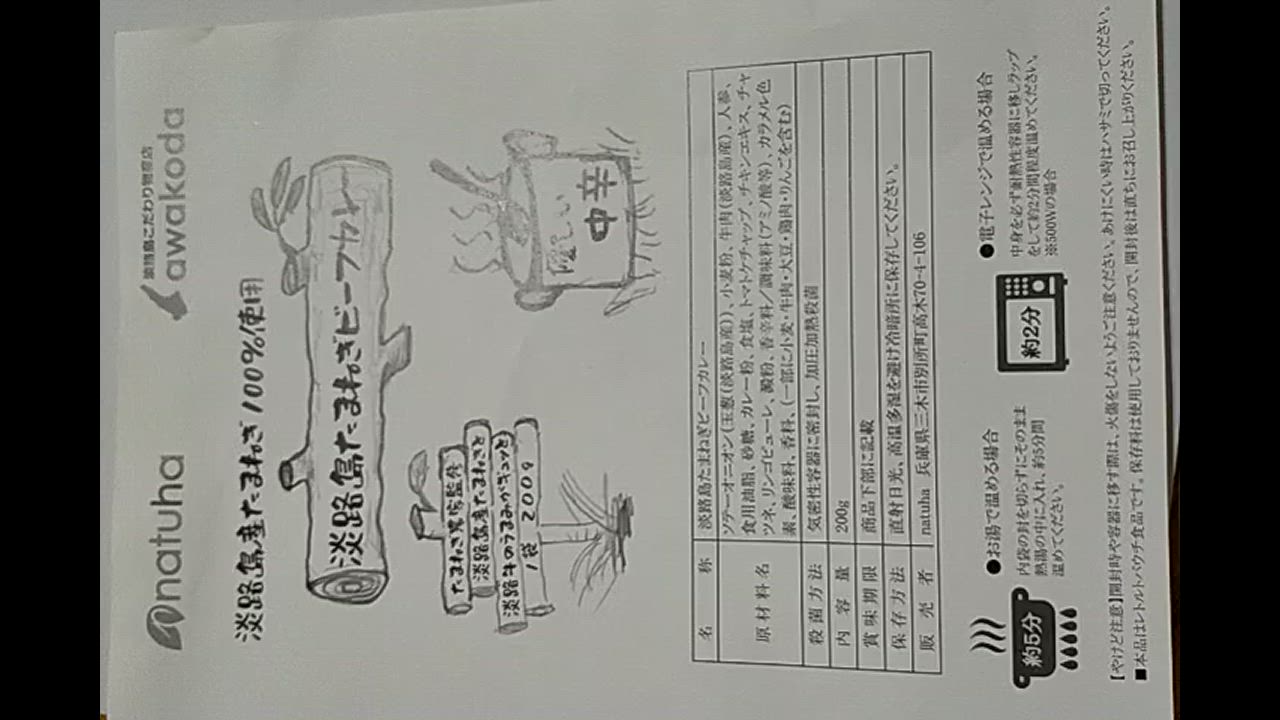 natuha
淡路島こだわり惣菜店
awakoda
淡路島産たまねぎ100%使用
淡路島たまねぎビーフカレー
たまねぎ農家監修
淡路島産たまねぎと
淡路牛のうまみがギュッと
1袋 200g
優しい
中辛
名称 淡路島たまねぎビーフカレー
原材料名 ソテーオニオン(玉葱(淡路島産))、小麦粉、牛肉(淡路島産)、人参、
食用油脂、砂糖、カレー粉、食塩、トマトケチャップ、チキンエキス、チャ
ツネ、リンゴピューレ、澱粉、香辛料/調味料(アミノ酸等)、カラメル色
素、酸味料、香料、(一部に小麦・牛肉・大豆・鶏肉・りんごを含む)
殺菌方法 気密性容器に密封し、加圧加熱殺菌
内容量 200g
賞味期限 商品下部に記載
保存方法 直射日光、高温多湿を避け冷暗所に保存してください。
販売者 natuha 兵庫県三木市別所町高木70-4-106
約5分
●お湯で温める場合
内袋の封を切らずにそのまま
熱湯の中に入れ、約5分間
温めてください。
約2分
●電子レンジで温める場合
中身を必ず耐熱性容器に移しラップ
をして約2分間程度温めてください。
※500Wの場合
【やけど注意】開封時や容器に移す際は、火傷をしないようご注意ください。あけにくい時はハサミで切ってください。
■本品はレトルトパウチ食品です。保存料は使用しておりませんので、開封後は直ちにお召し上がりください。